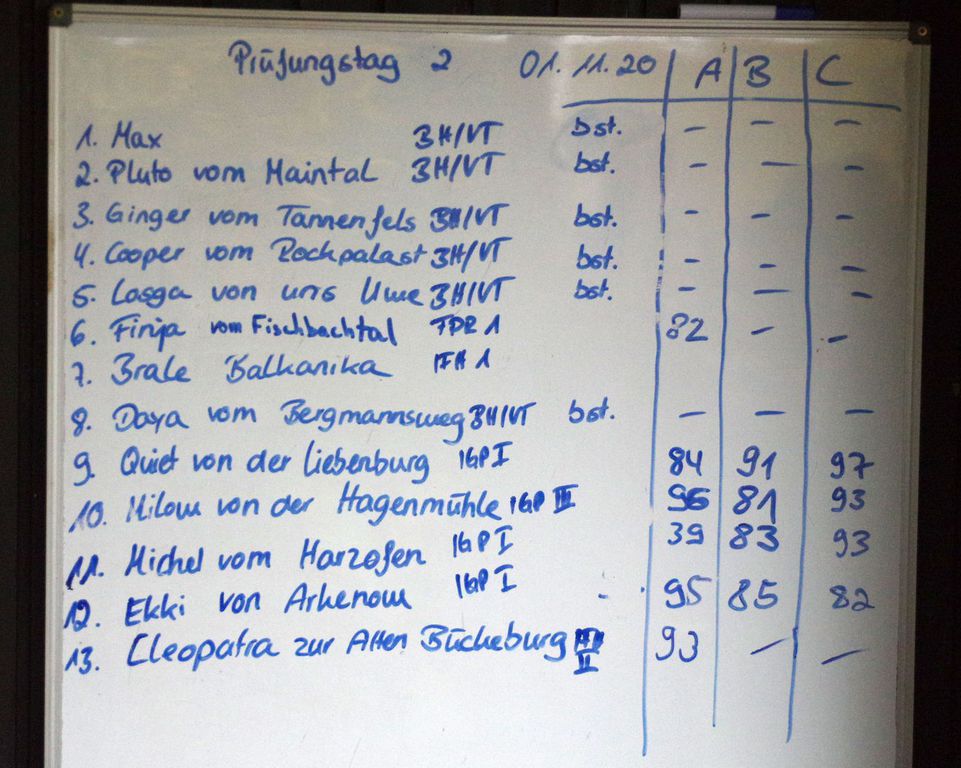 Prüfungstag 2 01.11.20 A B C
1. Max BH/VT bst. – – –
2. Pluto vom Maintal BH/VT bst. – – –
3. Ginger vom Tannenfels BH/VT bst. – – –
4. Cooper vom Rockpalast BH/VT bst. – – –
5. von uns Uwe BH/VT bst. – – –
6. Finja vom Fischbachtal FPR 1 82 – –
7. Brale Balkanika IFH 1
8. Daya vom Bergmannsweg BH/VT bst. – – –
9. Quiet von der Liebenburg IGP I 84 91 97
10. Milow von der Hagenmühle IGP III 96 81 93
11. Michel vom Harzofen IGP I 39 83 93
12. Ekki von Arkenow IGP I - 95 85 82
13. Cleopatra zur Alten Bücheburg 93 – –
II